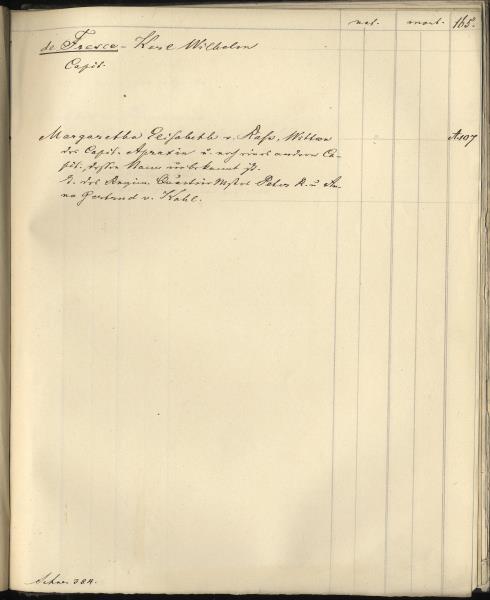 nat. mort. 165.
de Fresce - Karl Wilhelm
Capit.
Margaretha Elisabeth v. Kass. Wittwe A 107
des Capit. Apraxin u. noch eines andern Ca-
pit. dessen Name unbekannt ist.
T. des Regim. Quartier Mstrs Peter K. u. An-
na Gertrud v. Kohl.